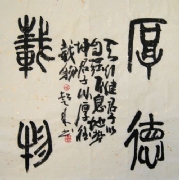 厚德
載物
天行健君子以
自强不息地势
坤君子以厚德
載物